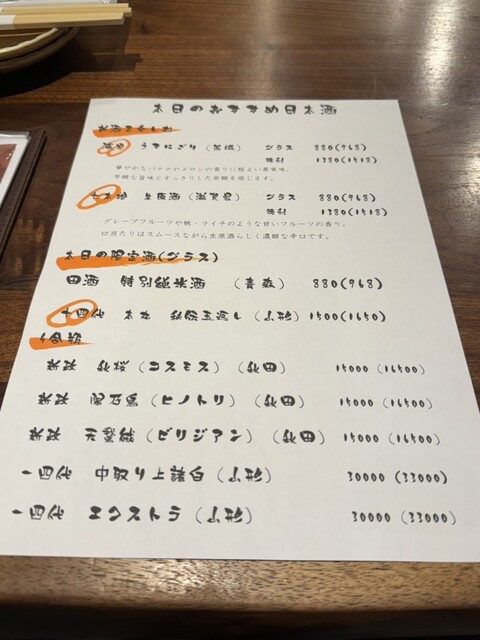 本日のおすすめ日本酒
うすにごり（茨城） グラス 880(968)
徳利 1380(1518)
華やかなバナナやメロンの香りに程よい果実味。
芳醇な旨味とすっきりした余韻を感じます。
生原酒（滋賀県） グラス 880(968)
徳利 1380(1518)
グレープフルーツや桃・ライチのような甘いフルーツの香り。
口当たりはスムースながら生原酒らしく濃醇な辛口です。
本日の限定酒(グラス)
田酒 特別純米酒 （青森） 880(968)
十四代 本丸 秘伝玉返し（山形）1500(1650)
4合瓶
新政 秋桜（コスモス）（秋田） 15000（16500）
新政 （ヒノトリ）（秋田） 15000（16500）
新政 天鵞絨（ビリジアン）（秋田） 15000（16500）
十四代 中取り上諸白（山形） 30000（33000）
十四代 エクストラ（山形） 30000（33000）